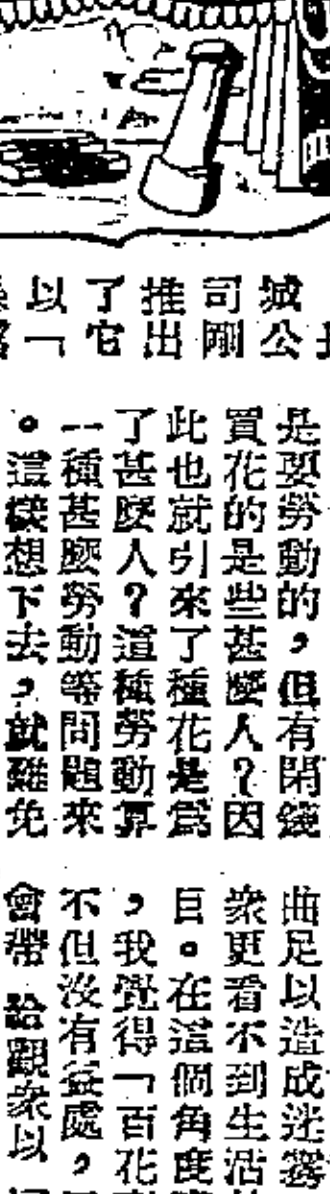 城公
司剛
推出
了它
以「
是要勞動的，但有閑錢
買花的是些甚麼人？因
此也就引來了種花是爲
了甚麼人？這種勞動算
一種甚麼勞動等問題來
。這樣想下去，就難免
曲足以造成迷霧
衆更看不到生活
目。在這個角度
，我覺得「百花
不但沒有益處，
會帶給觀衆以